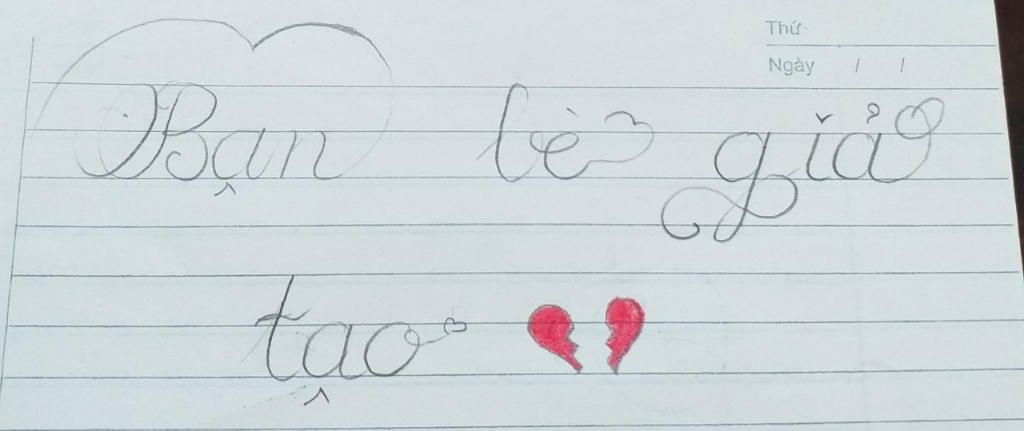 Thứ
Ngày / /
Bạn bè giả
tạo